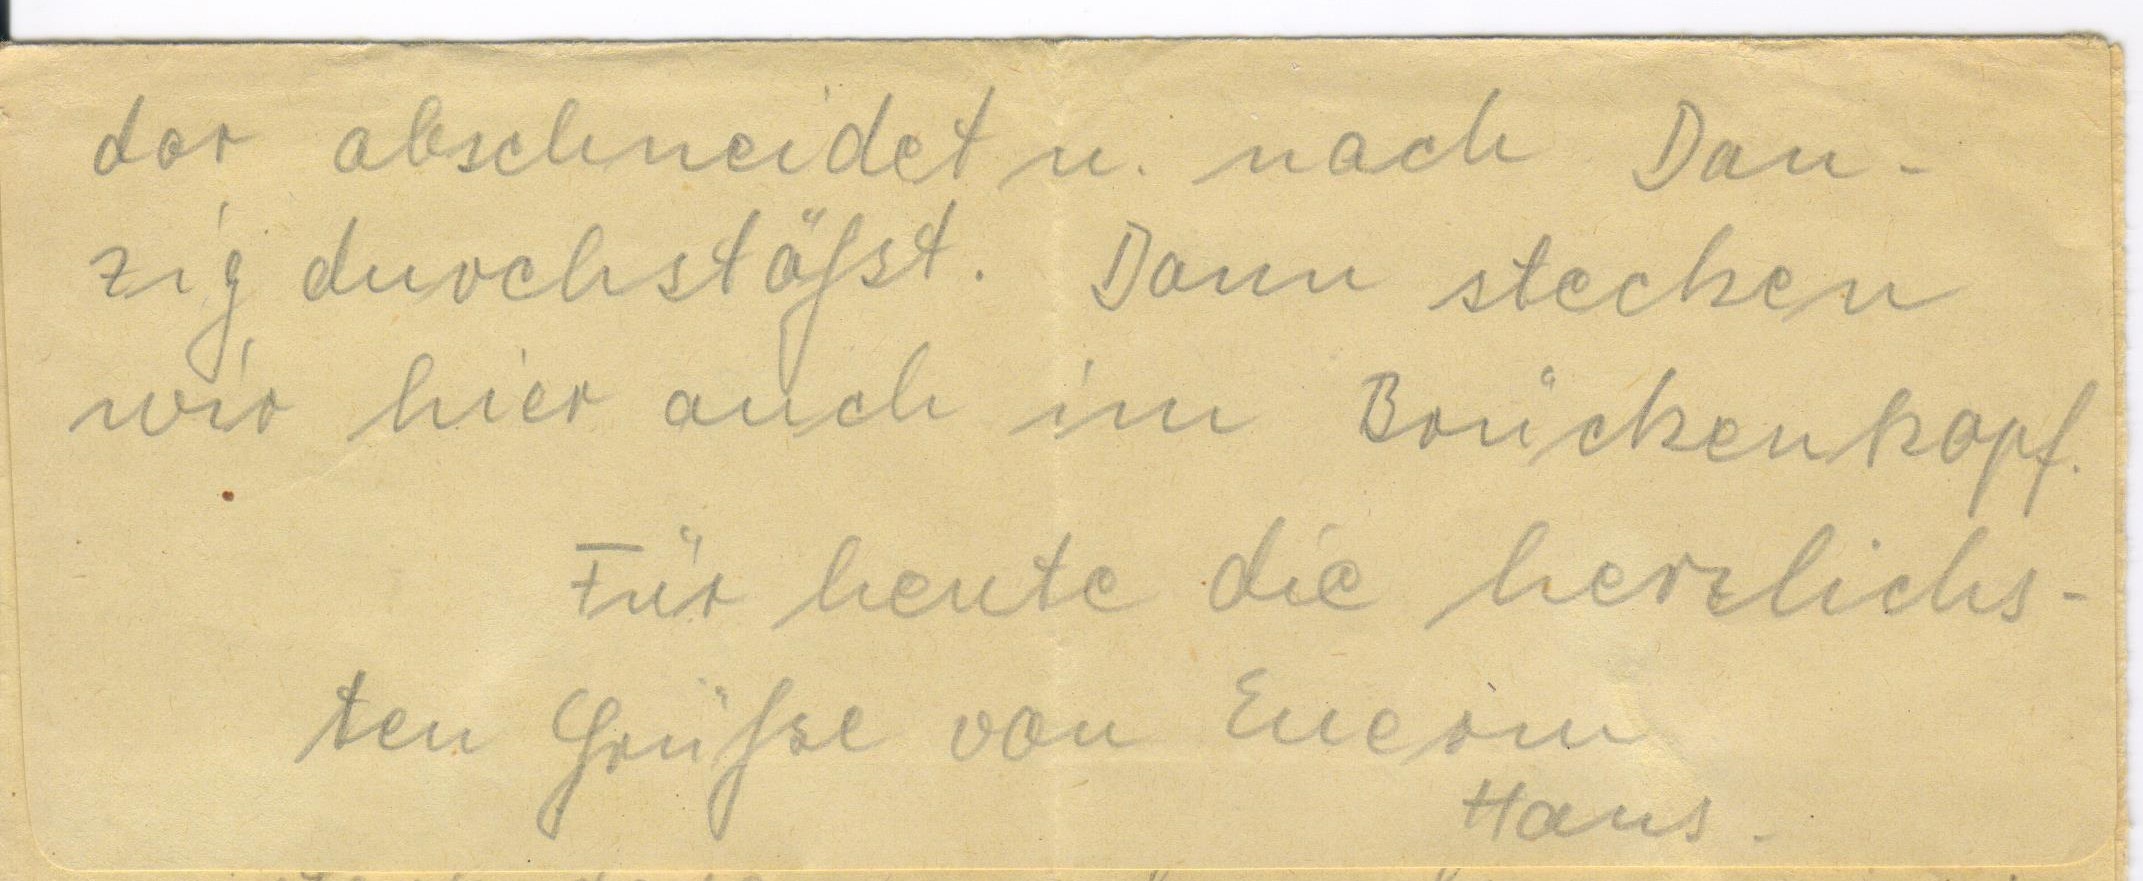 dor abschneidet u. nach Dan-
zig durchstößt. Dann stecken
wir hier auch im Brückenkopf.
Für heute die herzlichs-
ten Grüße von Euerm
Hans.